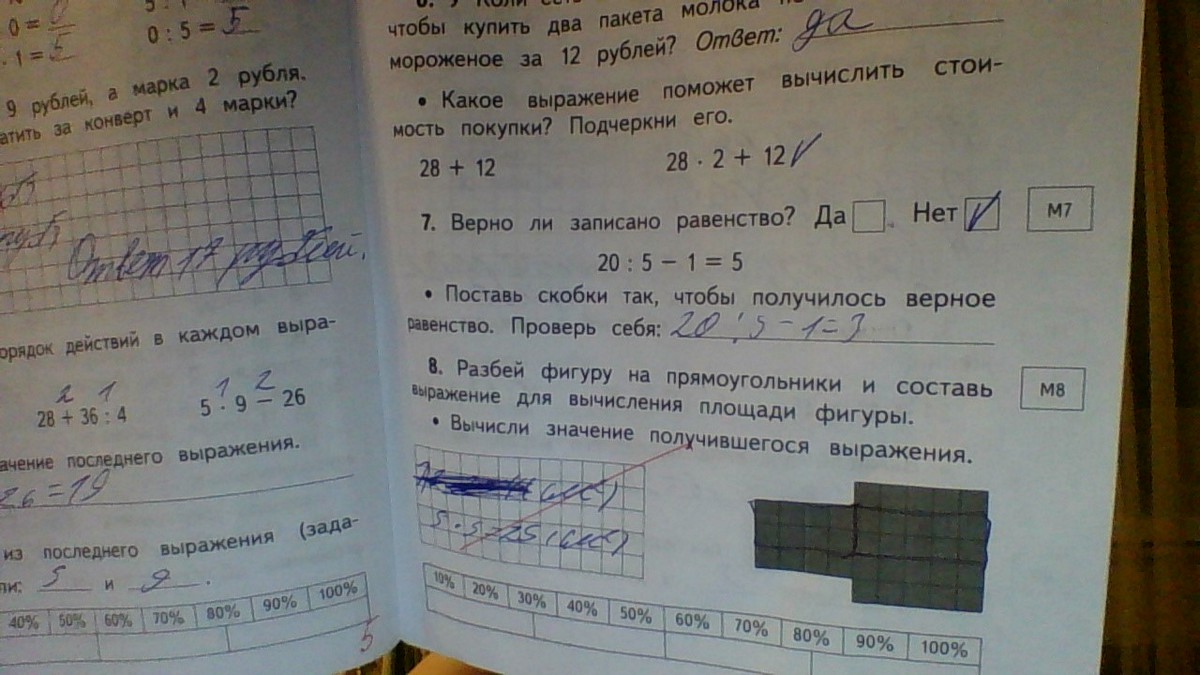 0 =
0 : 5 = 5
. 1 = 5
9 рублей, а марка 2 рубля.
атить за конверт и 4 марки?
Ответ 17 рублей.
орядок действий в каждом выра-
2 1
28 + 36 : 4
1 2
5 · 9 − 26
ачение последнего выражения.
26 = 19
из последнего выражения (зада-
ли: 5 и 9 .
40% 50% 60% 70% 80% 90% 100%
5
чтобы купить два пакета молока
мороженое за 12 рублей? Ответ: да
• Какое выражение поможет вычислить стои-
мость покупки? Подчеркни его.
28 + 12 28 · 2 + 12
7. Верно ли записано равенство? Да Нет М7
20 : 5 − 1 = 5
• Поставь скобки так, чтобы получилось верное
равенство. Проверь себя: 20 : 5 − 1 = 3
8. Разбей фигуру на прямоугольники и составь М8
выражение для вычисления площади фигуры.
• Вычисли значение получившегося выражения.
5 · 5 = 25
10% 20% 30% 40% 50% 60% 70% 80% 90% 100%